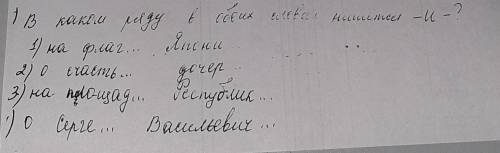 1) В каком ряду в обоих словах пишется -и-?
1) на флаг... Япони ...
2) О счасть... дочер...
3) на площад... Республик...
) О Серге... Васильевич...